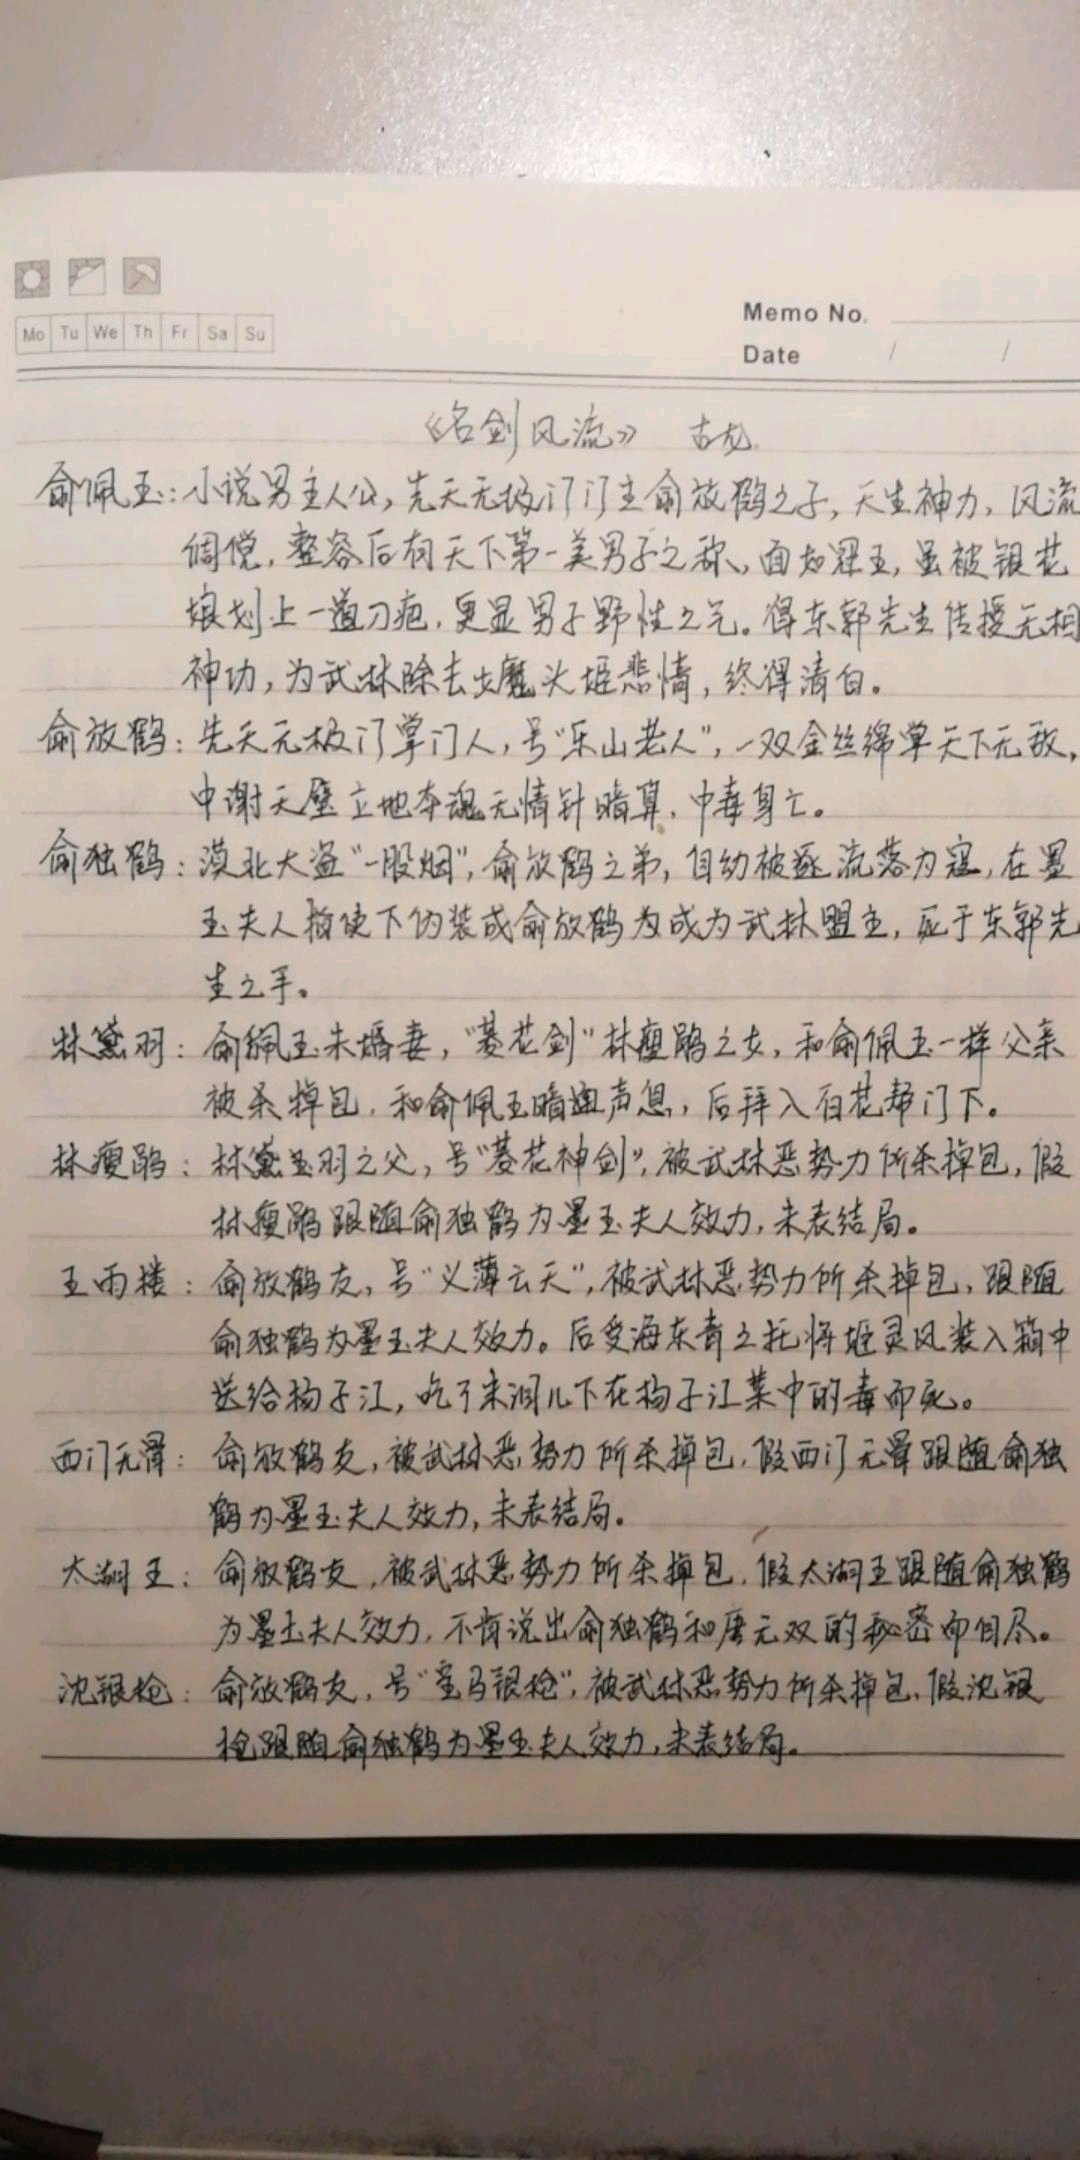 Mo Tu We Th Fr Sa Su
Memo No.
Date / /
《名剑风流》 古龙
俞佩玉：小说男主人公，先天无极门门主俞放鹤之子，天生神力，风流
倜傥，整容后有天下第一美男子之称，面如冠玉，虽被银花
娘划上一道刀疤，更显男子野性之气。得东郭先生传授无相
神功，为武林除去女魔头姬悲情，终得清白。
俞放鹤：先天无极门掌门人，号“乐山老人”，一双金丝绵掌天下无敌，
中谢天璧立地夺魂无情针暗算，中毒身亡。
俞独鹤：漠北大盗“一股烟”，俞放鹤之弟，自幼被逐流落为寇，在墨
玉夫人指使下伪装成俞放鹤为成为武林盟主，死于东郭先
生之手。
林黛羽：俞佩玉未婚妻，“菱花剑”林瘦鹃之女，和俞佩玉一样父亲
被杀掉包，和俞佩玉暗通声息，后拜入百花帮门下。
林瘦鹃：林黛玉羽之父，号“菱花神剑”，被武林恶势力所杀掉包，假
林瘦鹃跟随俞独鹤为墨玉夫人效力，未表结局。
王雨楼：俞放鹤友，号“义薄云天”，被武林恶势力所杀掉包，跟随
俞独鹤为墨玉夫人效力。后受海东青之托将姬灵风装入箱中
送给杨子江，吃了朱泪儿下在杨子江菜中的毒而死。
西门无骨：俞放鹤友，被武林恶势力所杀掉包，假西门无骨跟随俞独
鹤为墨玉夫人效力，未表结局。
太湖王：俞放鹤友，被武林恶势力所杀掉包，假太湖王跟随俞独鹤
为墨玉夫人效力，不肯说出俞独鹤和唐无双的秘密而自尽。
沈银枪：俞放鹤友，号“宝马银枪”，被武林恶势力所杀掉包，假沈银
枪跟随俞独鹤为墨玉夫人效力，未表结局。